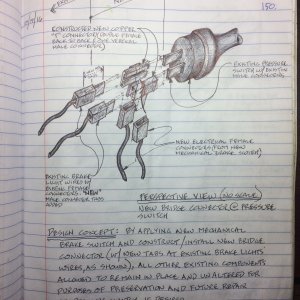 150.
CONSTRUCTED NEW COPPER
"T" CONNECTORS (DOUBLE FEMALE
BACK TO BACK / ONE VERTICAL
MALE CONNECTOR)
EXISTING PRESSURE
SWITCH W/ EXISTING
MALE CONNECTORS
NEW ELECTRICAL FEMALE
CONNECTORS (FROM NEW
MECHANICAL BRAKE SWITCH)
EXISTING BRAKE
LIGHT WIRES W/
FEMALE
CONNECTORS. "NEW"
MALE CONNECTOR TABS
ADDED
PERSPECTIVE VIEW (NO SCALE)
NEW BRIDGE CONNECTOR @ PRESSURE
SWITCH
DESIGN CONCEPT: BY APPLYING NEW MECHANICAL
BRAKE SWITCH AND CONSTRUCT/INSTALL NEW BRIDGE
CONNECTOR (W/ NEW TABS AT EXISTING BRAKE LIGHTS
WIRES AS SHOWN), ALL OTHER EXISTING COMPONENTS
ALLOWED TO REMAIN IN PLACE AND UNALTERED FOR
PURPOSES OF PRESERVATION AND FUTURE REPAIR
IS DESIRED